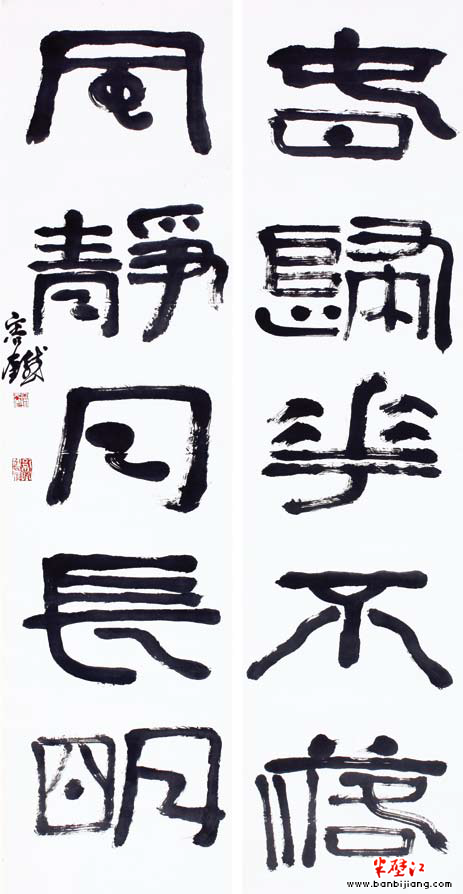 春歸華不落
風靜月長明
容鐵
半壁江
www.banbijiang.com